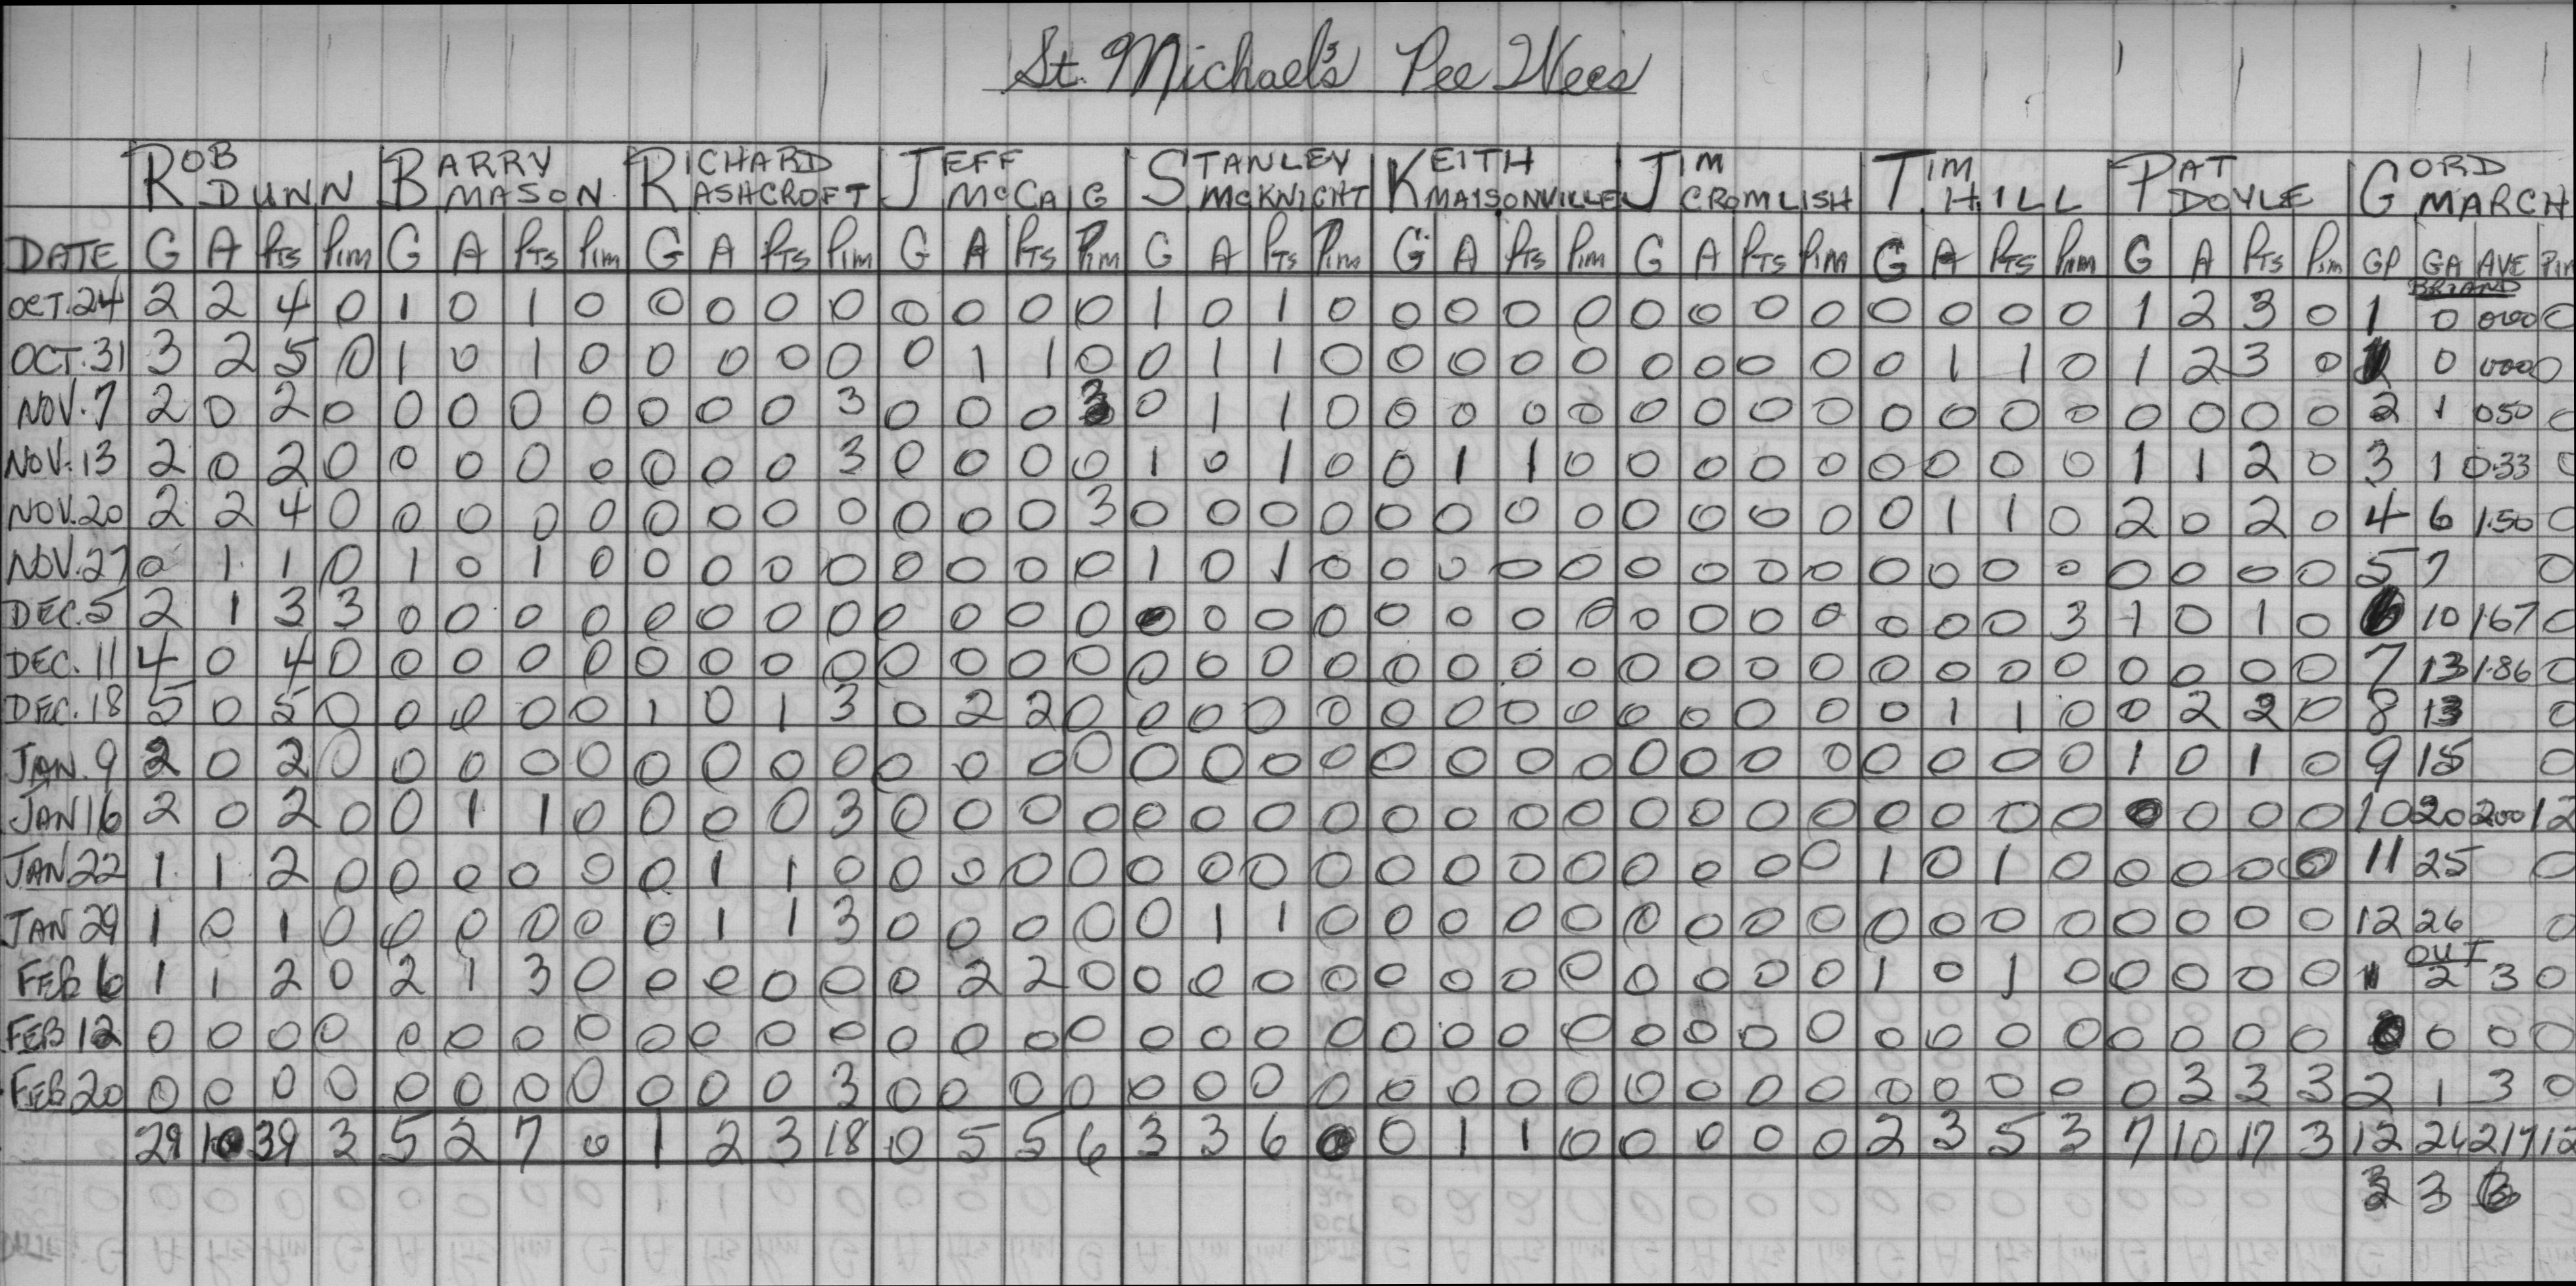 St. Michael's Pee Wees
ROB DUNN BARRY MASON RICHARD ASHCROFT JEFF McCAIG STANLEY McKNIGHT KEITH MAISONVILLE JIM CROMLISH TIM HILL PAT DOYLE GORD MARCH
DATE G A Pts Pim G A Pts Pim G A Pts Pim G A Pts Pim G A Pts Pim G A Pts Pim G A Pts Pim G A Pts Pim G A Pts Pim GP GA AVE Pim
BRIAND
OCT.24 2 2 4 0 1 0 1 0 0 0 0 0 0 0 0 0 1 0 1 0 0 0 0 0 0 0 0 0 0 0 0 0 1 2 3 0 1 0 0.00 0
OCT.31 3 2 5 0 1 0 1 0 0 0 0 0 0 1 1 0 0 1 1 0 0 0 0 0 0 0 0 0 0 1 1 0 1 2 3 0 0 000 0
NOV.7 2 0 2 0 0 0 0 0 0 0 0 3 0 0 0 3 0 1 1 0 0 0 0 0 0 0 0 0 0 0 0 0 0 0 0 0 2 1 050 0
NOV.13 2 0 2 0 0 0 0 0 0 0 0 3 0 0 0 0 1 0 1 0 0 1 1 0 0 0 0 0 0 0 0 0 1 1 2 0 3 1 0.33 0
NOV.20 2 2 4 0 0 0 0 0 0 0 0 0 0 0 0 3 0 0 0 0 0 0 0 0 0 0 0 0 0 1 1 0 2 0 2 0 4 6 1.50 0
NOV.27 0 1 1 0 1 0 1 0 0 0 0 0 0 0 0 0 1 0 1 0 0 0 0 0 0 0 0 0 0 0 0 0 0 0 0 0 5 7 0
DEC.5 2 1 3 3 0 0 0 0 0 0 0 0 0 0 0 0 0 0 0 0 0 0 0 0 0 0 0 0 0 0 0 3 1 0 1 0 6 10 1.67 0
DEC.11 4 0 4 0 0 0 0 0 0 0 0 0 0 0 0 0 0 0 0 0 0 0 0 0 0 0 0 0 0 0 0 0 0 0 0 0 7 13 1.86 0
DEC.18 5 0 5 0 0 0 0 0 1 0 1 3 0 2 2 0 0 0 0 0 0 0 0 0 0 0 0 0 0 1 1 0 0 2 2 0 8 13 0
JAN.9 2 0 2 0 0 0 0 0 0 0 0 0 0 0 0 0 0 0 0 0 0 0 0 0 0 0 0 0 0 0 0 0 1 0 1 0 9 15 0
JAN 16 2 0 2 0 0 1 1 0 0 0 0 3 0 0 0 0 0 0 0 0 0 0 0 0 0 0 0 0 0 0 0 0 0 0 0 0 10 20 200 12
JAN 22 1 1 2 0 0 0 0 0 0 1 1 0 0 0 0 0 0 0 0 0 0 0 0 0 0 0 0 0 1 0 1 0 0 0 0 0 11 25 0
JAN 29 1 0 1 0 0 0 0 0 0 1 1 3 0 0 0 0 0 1 1 0 0 0 0 0 0 0 0 0 0 0 0 0 0 0 0 0 12 26 0
OUT
FEB 6 1 1 2 0 2 1 3 0 0 0 0 0 0 2 2 0 0 0 0 0 0 0 0 0 0 0 0 0 1 0 1 0 0 0 0 0 1 2 3 0
FEB 12 0 0 0 0 0 0 0 0 0 0 0 0 0 0 0 0 0 0 0 0 0 0 0 0 0 0 0 0 0 0 0 0 0 0 0 0 0 0 0
FEB 20 0 0 0 0 0 0 0 0 0 0 0 3 0 0 0 0 0 0 0 0 0 0 0 0 0 0 0 0 0 0 0 0 0 3 3 3 2 1 3 0
29 10 39 3 5 2 7 0 1 2 3 18 0 5 5 6 3 3 6 0 0 1 1 0 0 0 0 0 2 3 5 3 7 10 17 3 12 26 217 12
3 3